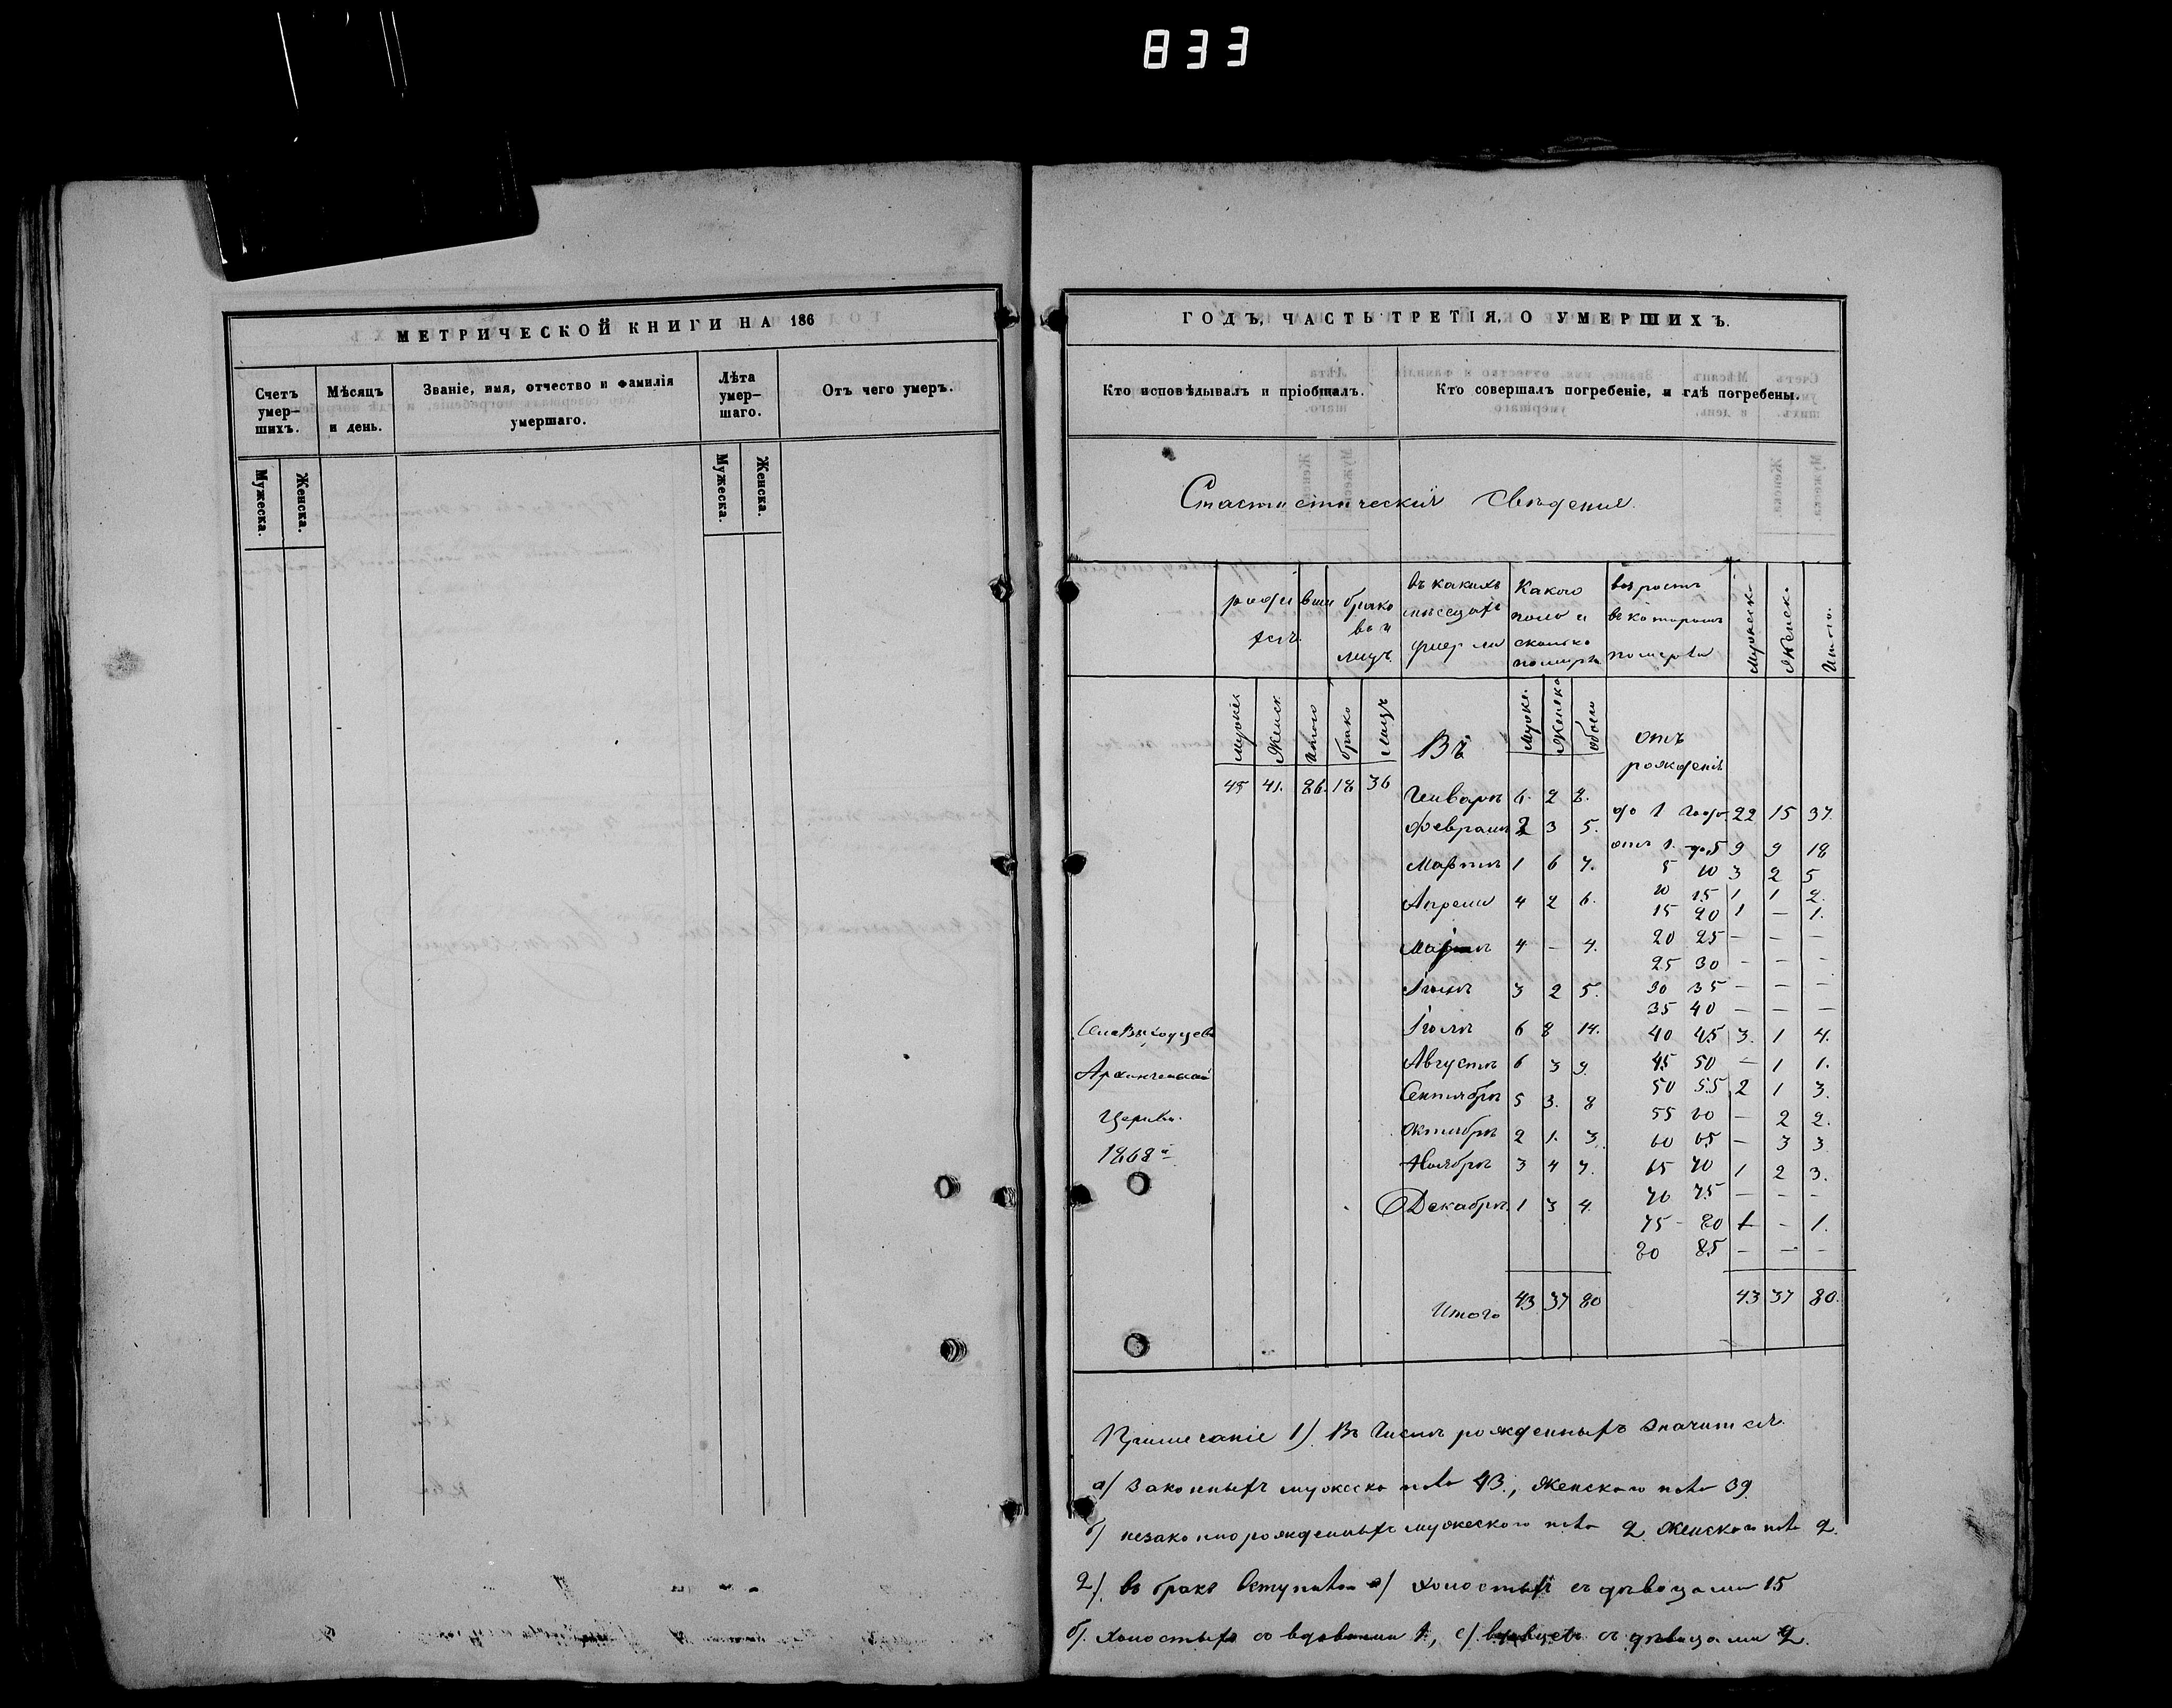 833
МЕТРИЧЕСКОЙ КНИГИ НА 186
Счетъ умер–шихъ.
Мѣсяцъ и день.
Званіе, имя, отчество и фамилія умершаго.
Лѣта умер–шаго.
Отъ чего умеръ.
Мужеска.
Женска.
Мужеска.
Женска.
ГОДЪ, ЧАСТЬ ТРЕТІЯ, О УМЕРШИХЪ.
Кто исповѣдывалъ и пріобщалъ.
Кто совершалъ погребеніе, и гдѣ погребены.
Статистическія свѣденія
родившихся.
браковъ и лицъ
въ какихъ мѣсяцахъ умерли
Какого пола и сколько померло
возрастъ въ которомъ померли
Мужеска
Женска
Итого.
Мужск
Женск
Итого
брако
лицъ
Въ
Мужск.
Женско
обоего
отъ рожденія
45 41. 86. 18 36
Январѣ 6. 2 8.
до 1 года 22 15 37.
Февралѣ 2 3 5.
отъ 1. до 5 9 9 18
Мартѣ 1 6 7.
5 10 3 2 5
Апрели 4 2 6.
10 15 1 1 2.
15 20 1 — 1.
Маѣ 4 — 4.
20 25 — — —
25 30 — — —
Іюнѣ 3 2 5.
30 35 — — —
35 40 — — —
Іюлѣ 6 8 14.
40 45 3. 1 4.
Августѣ 6 3 9.
45 50 — 1 1.
Сентябрѣ 5 3. 8
50 55 2 1 3.
55 60 — 2 2.
Октябрѣ 2 1. 3.
60 65 — 3 3
Ноябрѣ 3 4 7.
65 70 1 2 3.
Декабрѣ 1 3 4.
70 75 — — —
75 – 80 1 – 1.
80 85 — — —
Итого 43 37 80
43 37 80.
Села
Церкви.
1868
Примечаніе 1) Въ числѣ рожденныхъ значится.
а) законныхъ мужеска пола 43., женскаго пола 39.
б) незаконнорожденныхъ мужескаго пола 2 женскаго пола 2.
2). въ бракъ вступили а) холостыхъ съ дѣвицами 15
б). холостыхъ со вдовами 1, с) вдовцевъ съ дѣвицами 2.